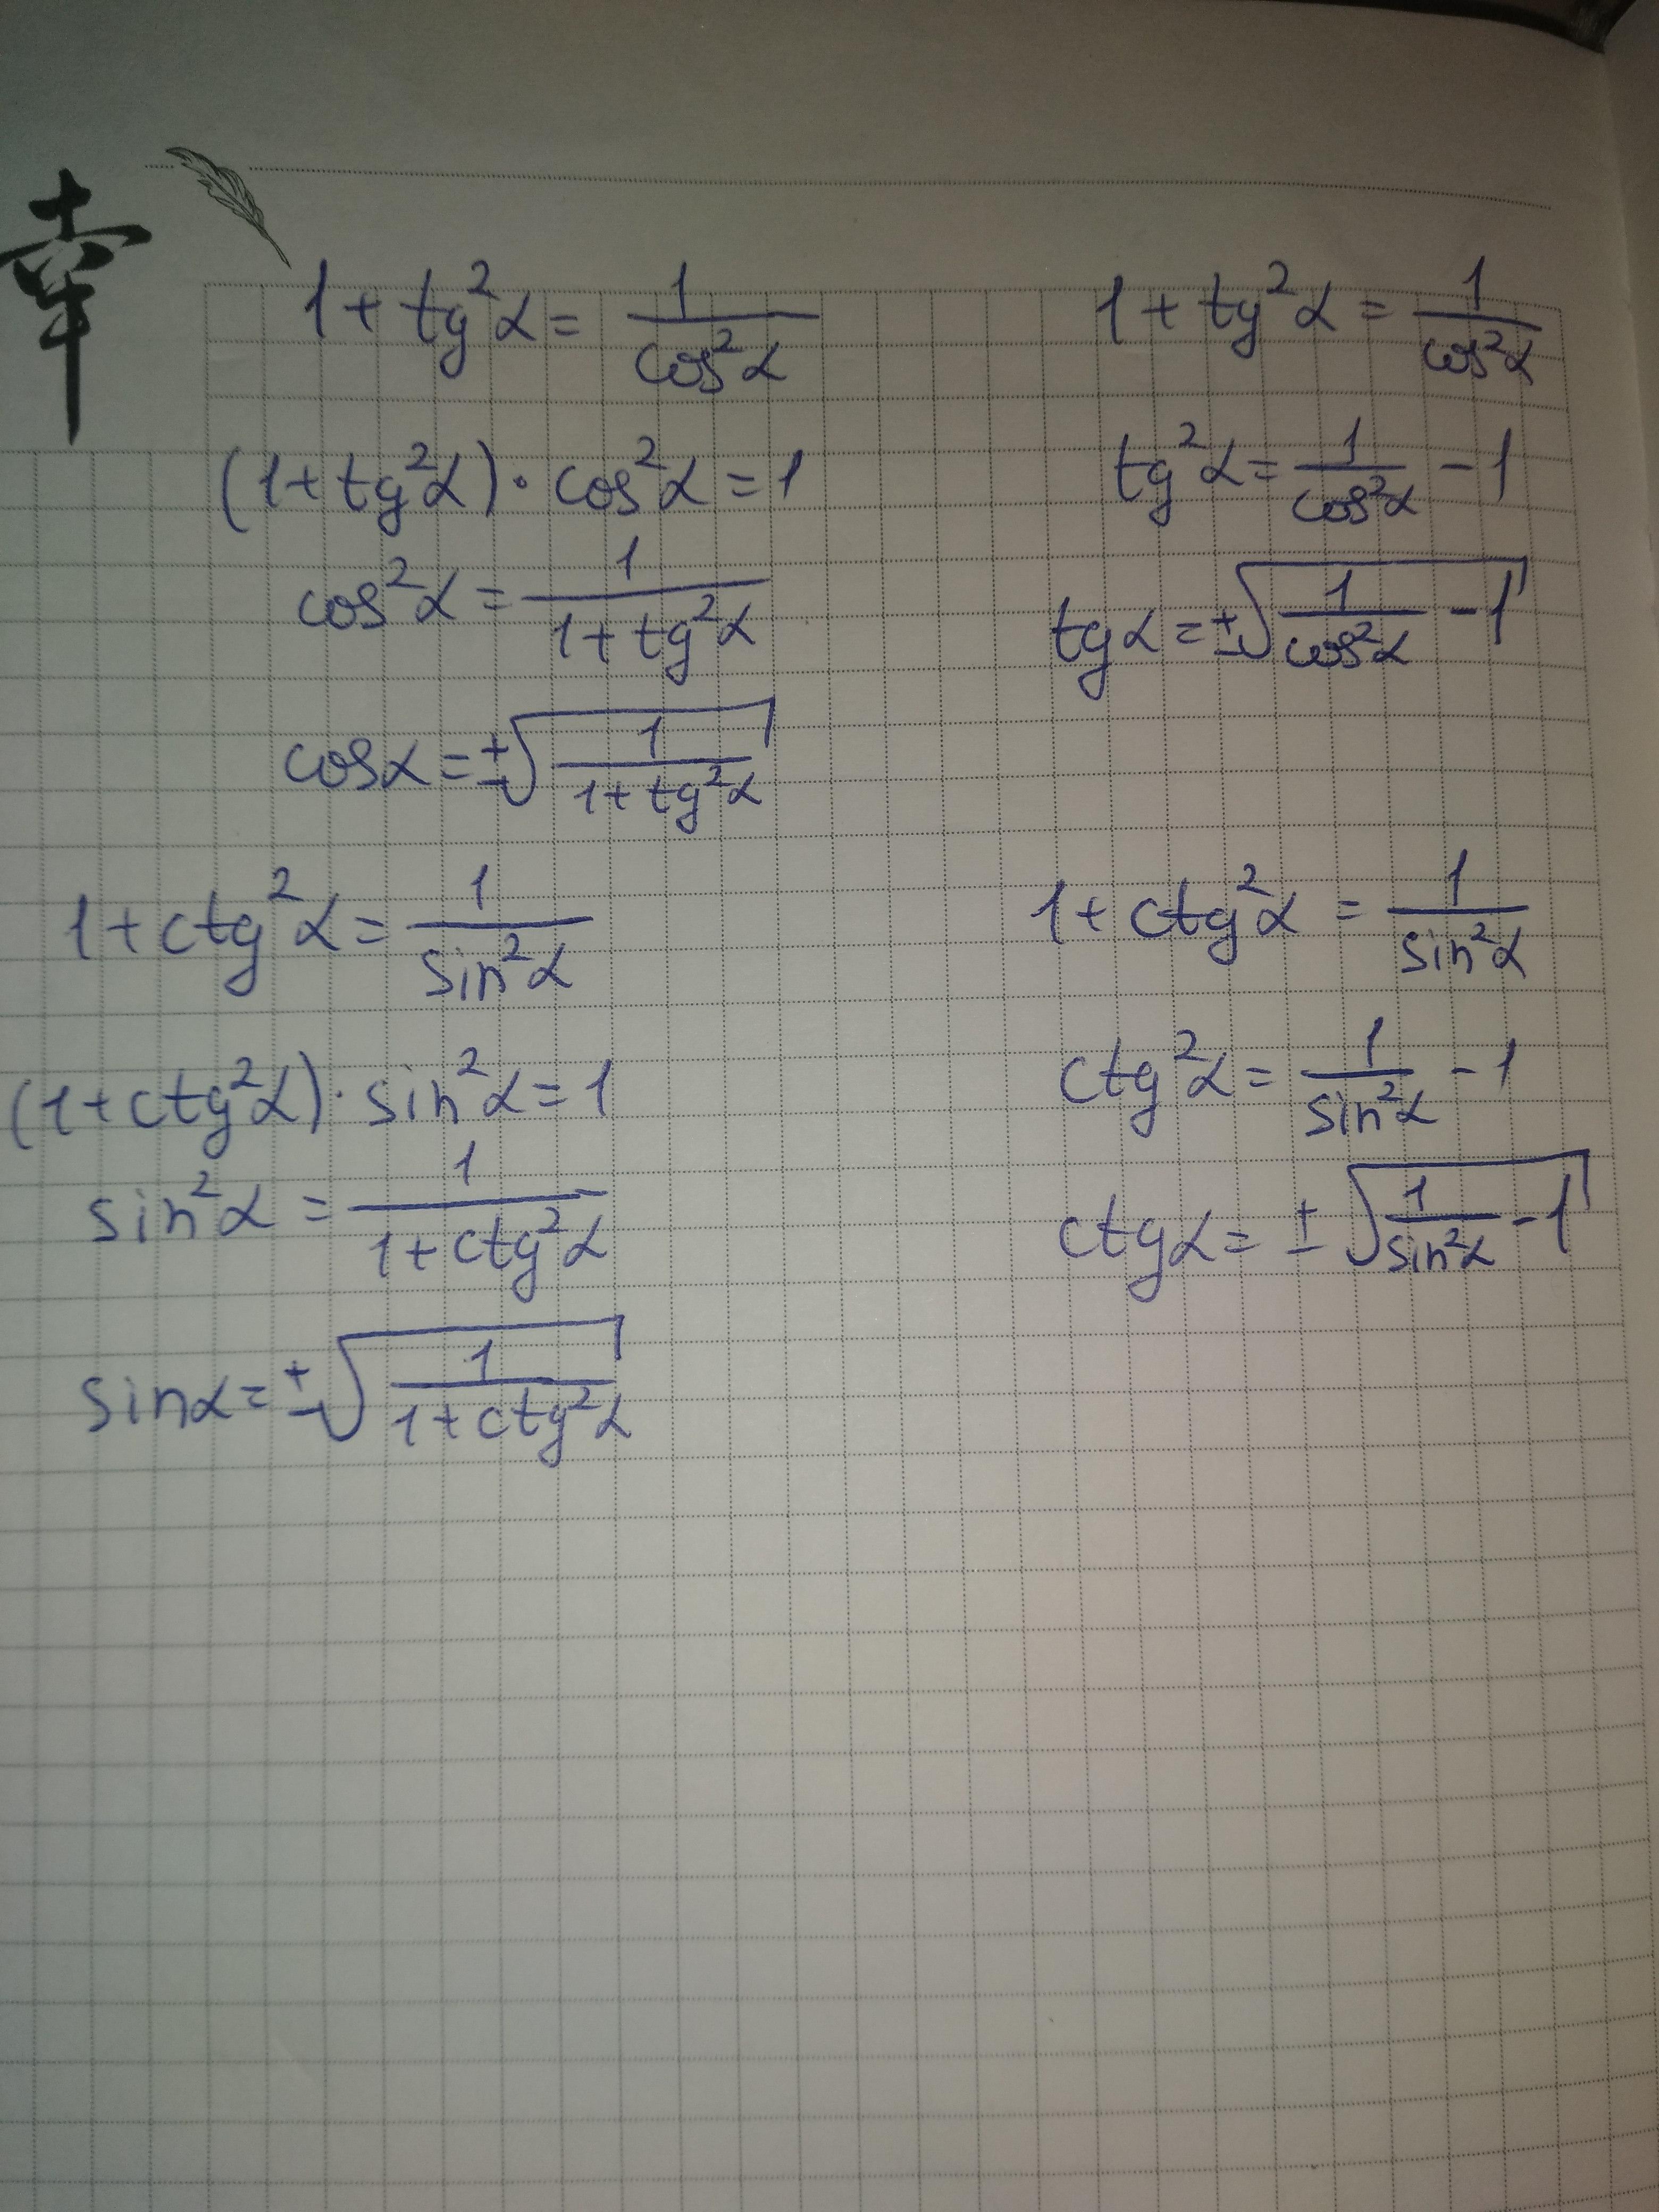 幸
1+tg²α = 1/cos²α
(1+tg²α)·cos²α = 1
cos²α = 1/(1+tg²α)
cosα = ±√(1/(1+tg²α))
1+tg²α = 1/cos²α
tg²α = 1/cos²α - 1
tgα = ±√(1/cos²α - 1)
1+ctg²α = 1/sin²α
(1+ctg²α)·sin²α = 1
sin²α = 1/(1+ctg²α)
sinα = ±√(1/(1+ctg²α))
1+ctg²α = 1/sin²α
ctg²α = 1/sin²α - 1
ctgα = ±√(1/sin²α - 1)